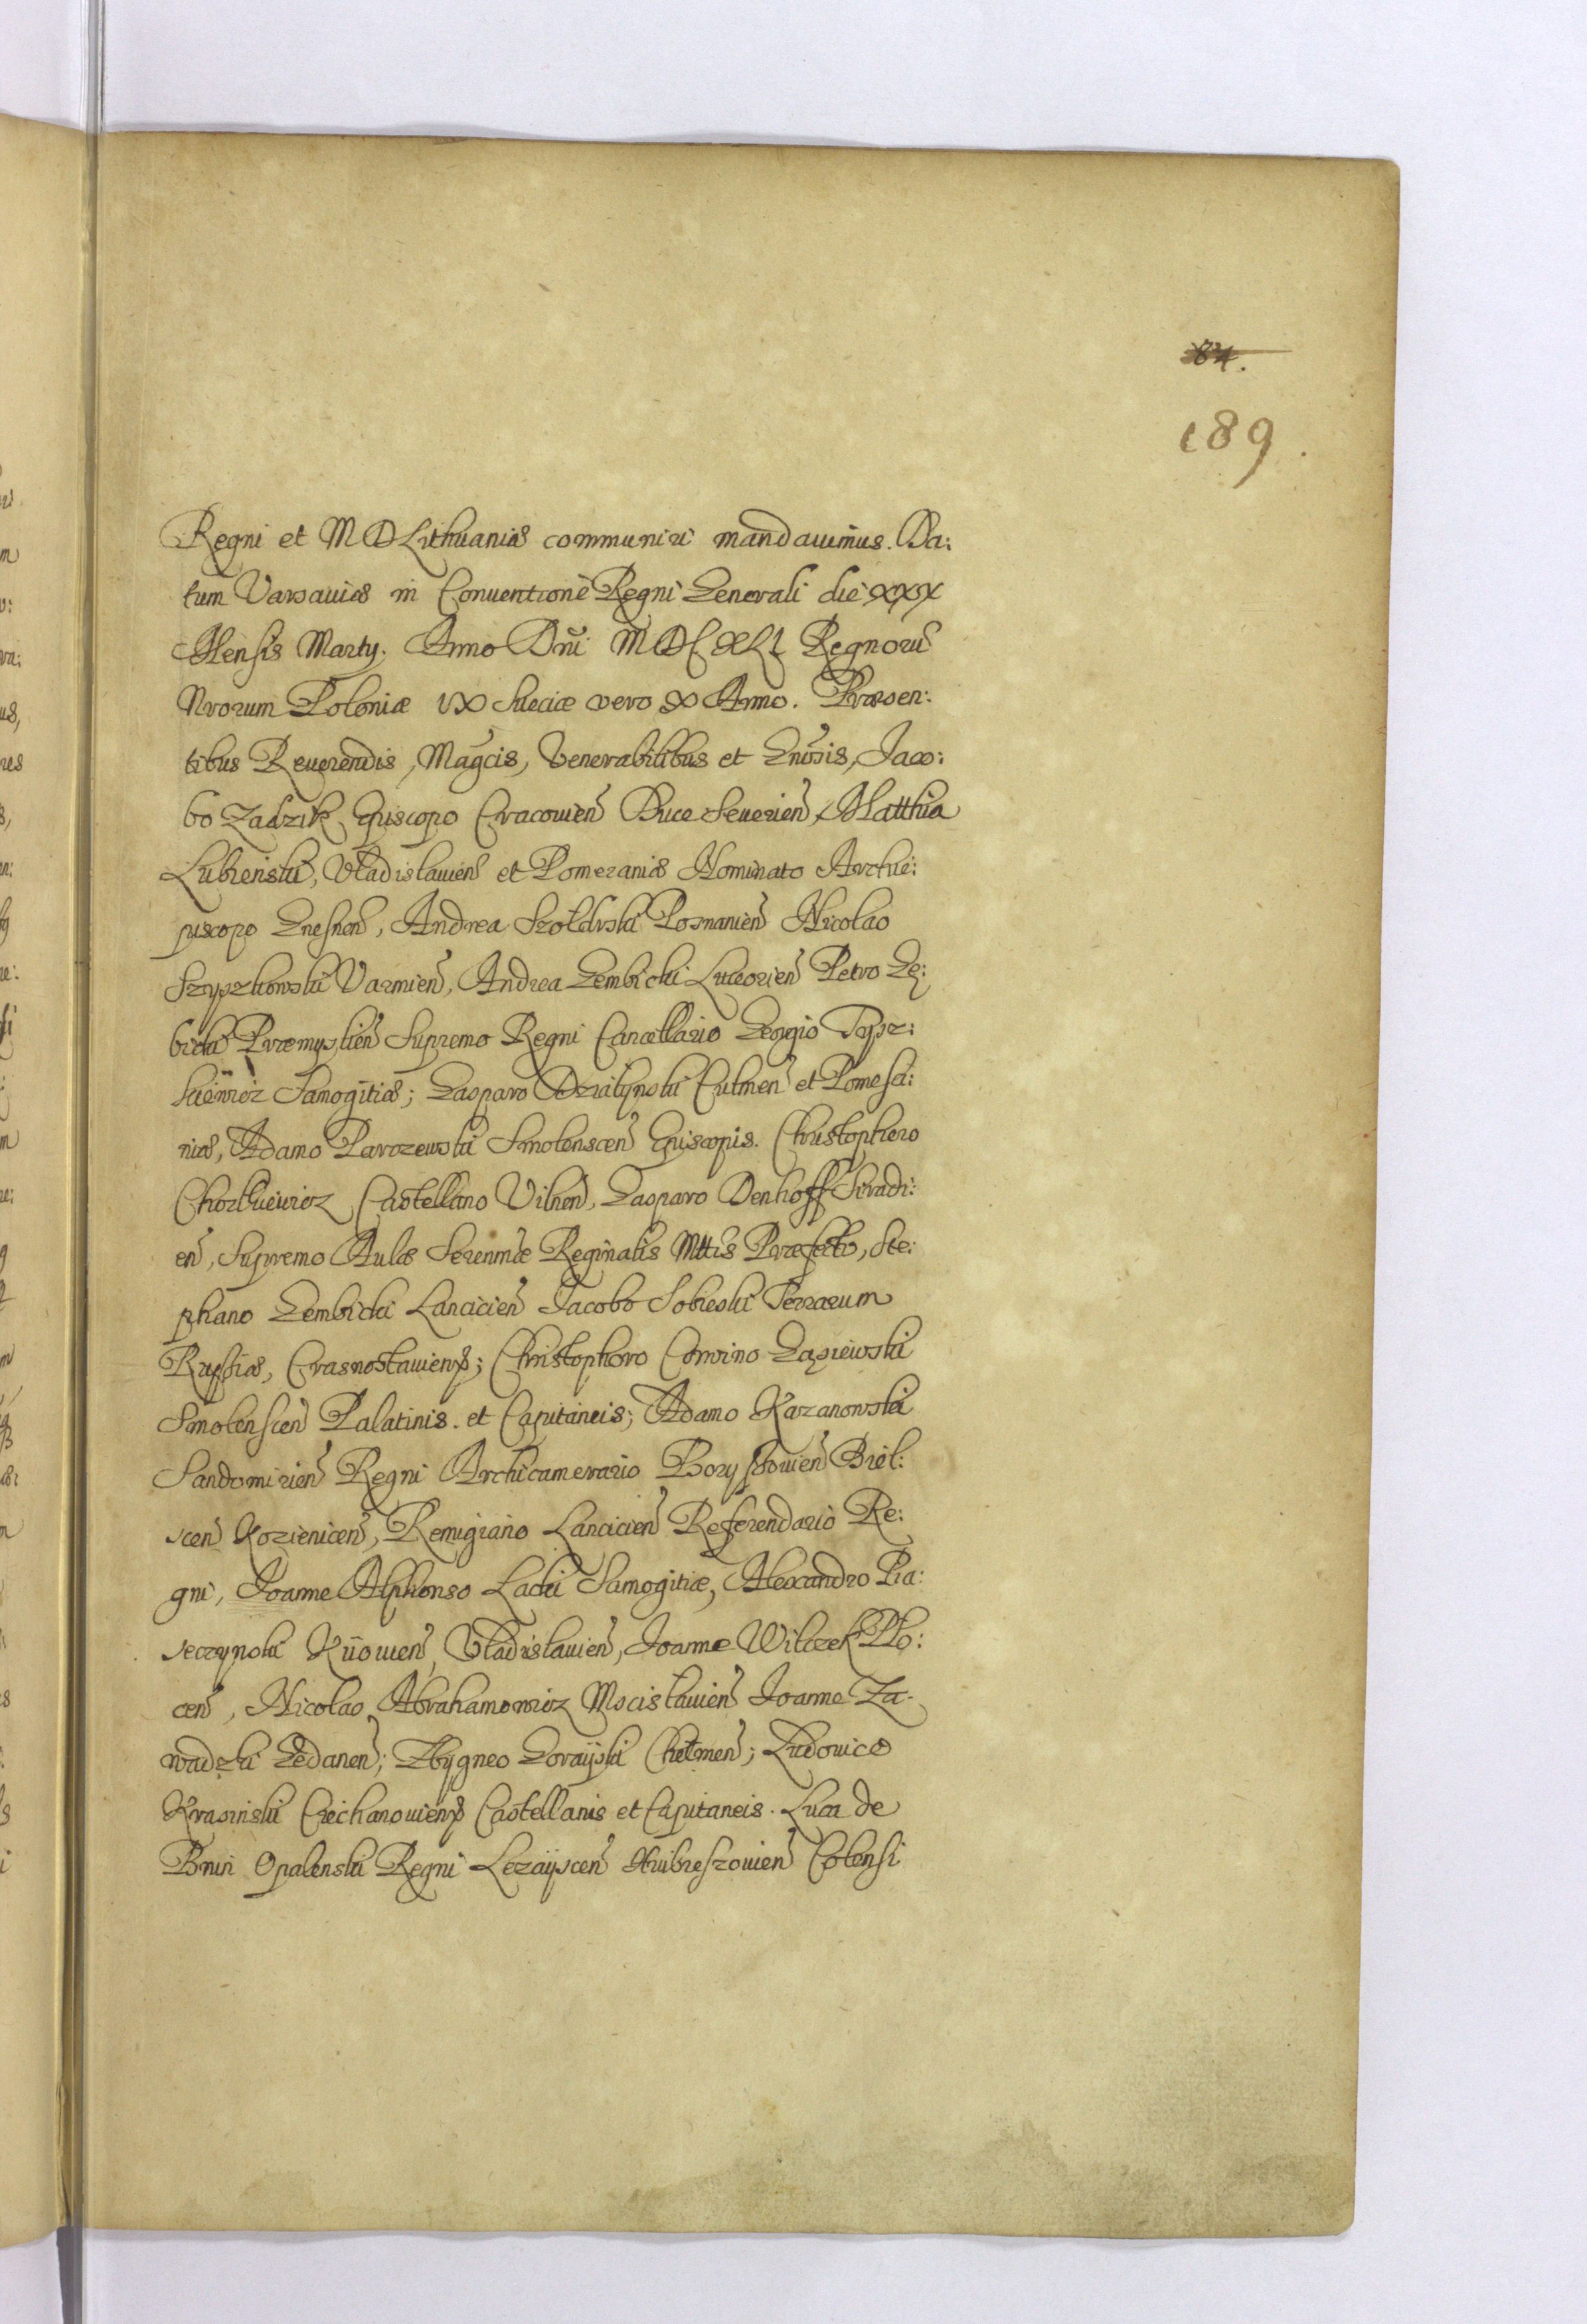 84.
189.
Regni et M D Lithuaniæ communiri mandavimus. Da:
tum Varsaviæ in Conventione Regni Generali die XXX
Mensis Marty. Anno Dni MDCXLI Regnorũ
Nrorum Poloniæ IX Sueciæ vero X Anno. Præsen:
tibus Reverendis, Magcis, Venerabilibus et Gnosis, Jaco:
bo Zadzik Episcopo Cracovien Duce Severien, Matthia
Lubienski, Vladislavien et Pomeraniæ Nominato Archie:
piscopo Gnesnen, Andrea Szoldrski Posnanien Nicolao
Szyszkowski Varmien, Andrea Gembicki Luceorien Petro Gę:
bicki Præmyslien Supremo Regni Cancellario Georgio Tysz:
kiewicz Samogitiæ; Gasparo Dzialynski Culmen et Pomesa:
niæ, Adamo Parczewski Smolenscen Episcopis. Christophero
Chotkiewicz Castellano Vilnen, Gasparo Denhoff Siradi:
en, Supremo Aulæ Serenmæ Reginalis Mttis Præfecto, Ste:
phano Gembicki Lancicien Jacobo Sobieski Terrarum
Russiæ, Crasnostaviens; Christophoro Corvino Gąsiewski
Smolenscen Palatinis. et Capitaneis; Adamo Kazanowski
Sandomirien Regni Archicamerario Boryssovien Biel:
scen Kozienicen, Remigiano Lancicien Referendario Re:
gni, Joanne Alphonso Lacki Samogitiæ, Alexandro Pia:
seczynski Kiiovien, Vladislavien, Joanne Wilczek Plo:
cen, Nicolao Abrahamowicz Mscislavien Joanne Za-
wadzki Gedanen; Zbygneo Gorayski Chelmen; Ludovico
Krasinski Ciechanoviens Castellanis et Capitaneis. Luca de
Bnin Opalenski Regni Lezayscen Hrubieszovien Colensi